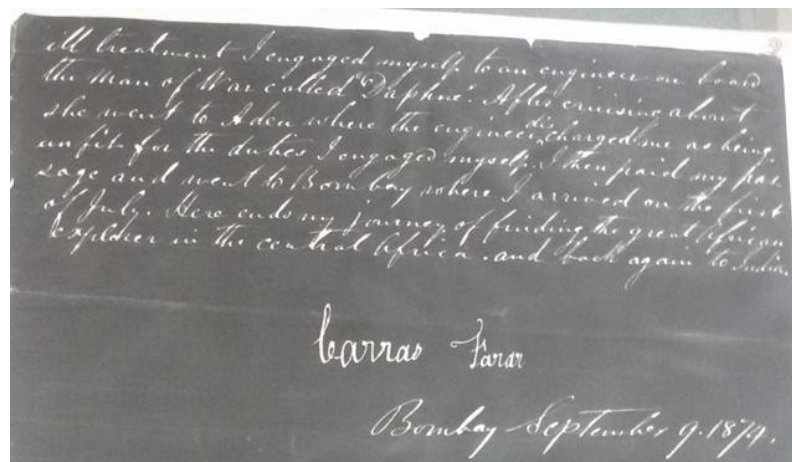 ill treatment I engaged myself to an engineer on board
the Man of War called "Daphne". After cruising about
she went to Aden where the engineer discharged me as being
unfit for the duties I engaged myself. I then paid my pas
sage and went to Bombay where I arrived on the first
of July. Here ends my journey of finding the great African
Explorer in the central Africa. and back again to India.
Carras Farar
Bombay September 9. 1874.